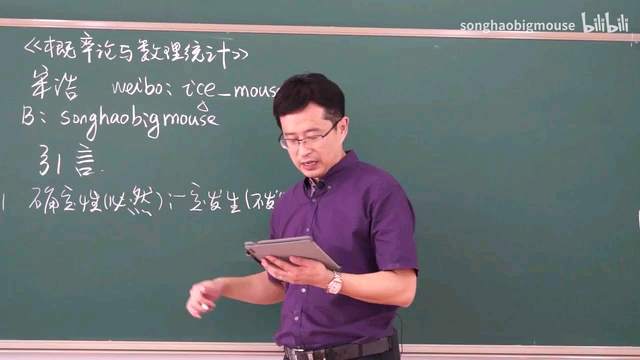 songhaobigmouse bilibili
《概率论与数理统计》
宋浩 weibo: ice_mouse
B: songhaobigmouse
引言
1 确定性(必然):一定发生(不发